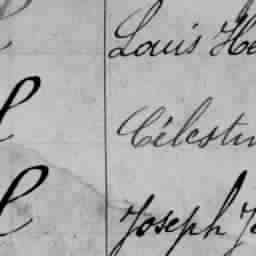 Louis He
Célestin
Joseph J